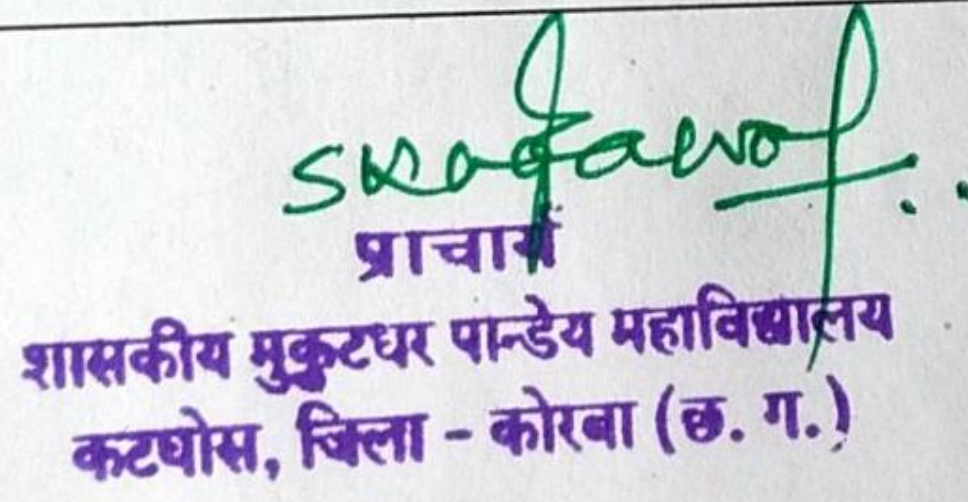 प्राचार्य
शासकीय मुकुटधर पान्डेय महाविद्यालय
कटघोरा, जिला - कोरबा (छ. ग.)